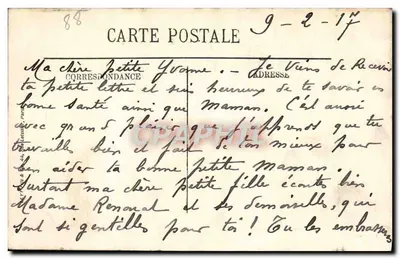 88
9-2-17
CARTE POSTALE
Ma chère petite Yvonne. - Je viens de Recevoir
CORRESPONDANCE
ADRESSE
ta petite lettre et suis heureux de te savoir en
bonne santé ainsi que Maman. C'est aussi
avec grand plaisir que j'apprends que tu
travailles bien et fait de ton mieux pour
bien aider ta bonne petite Maman
Surtout ma chère petite fille écoutes bien
Madame et ses demoiselles, qui
sont si gentilles pour toi! Tu les embrasseras